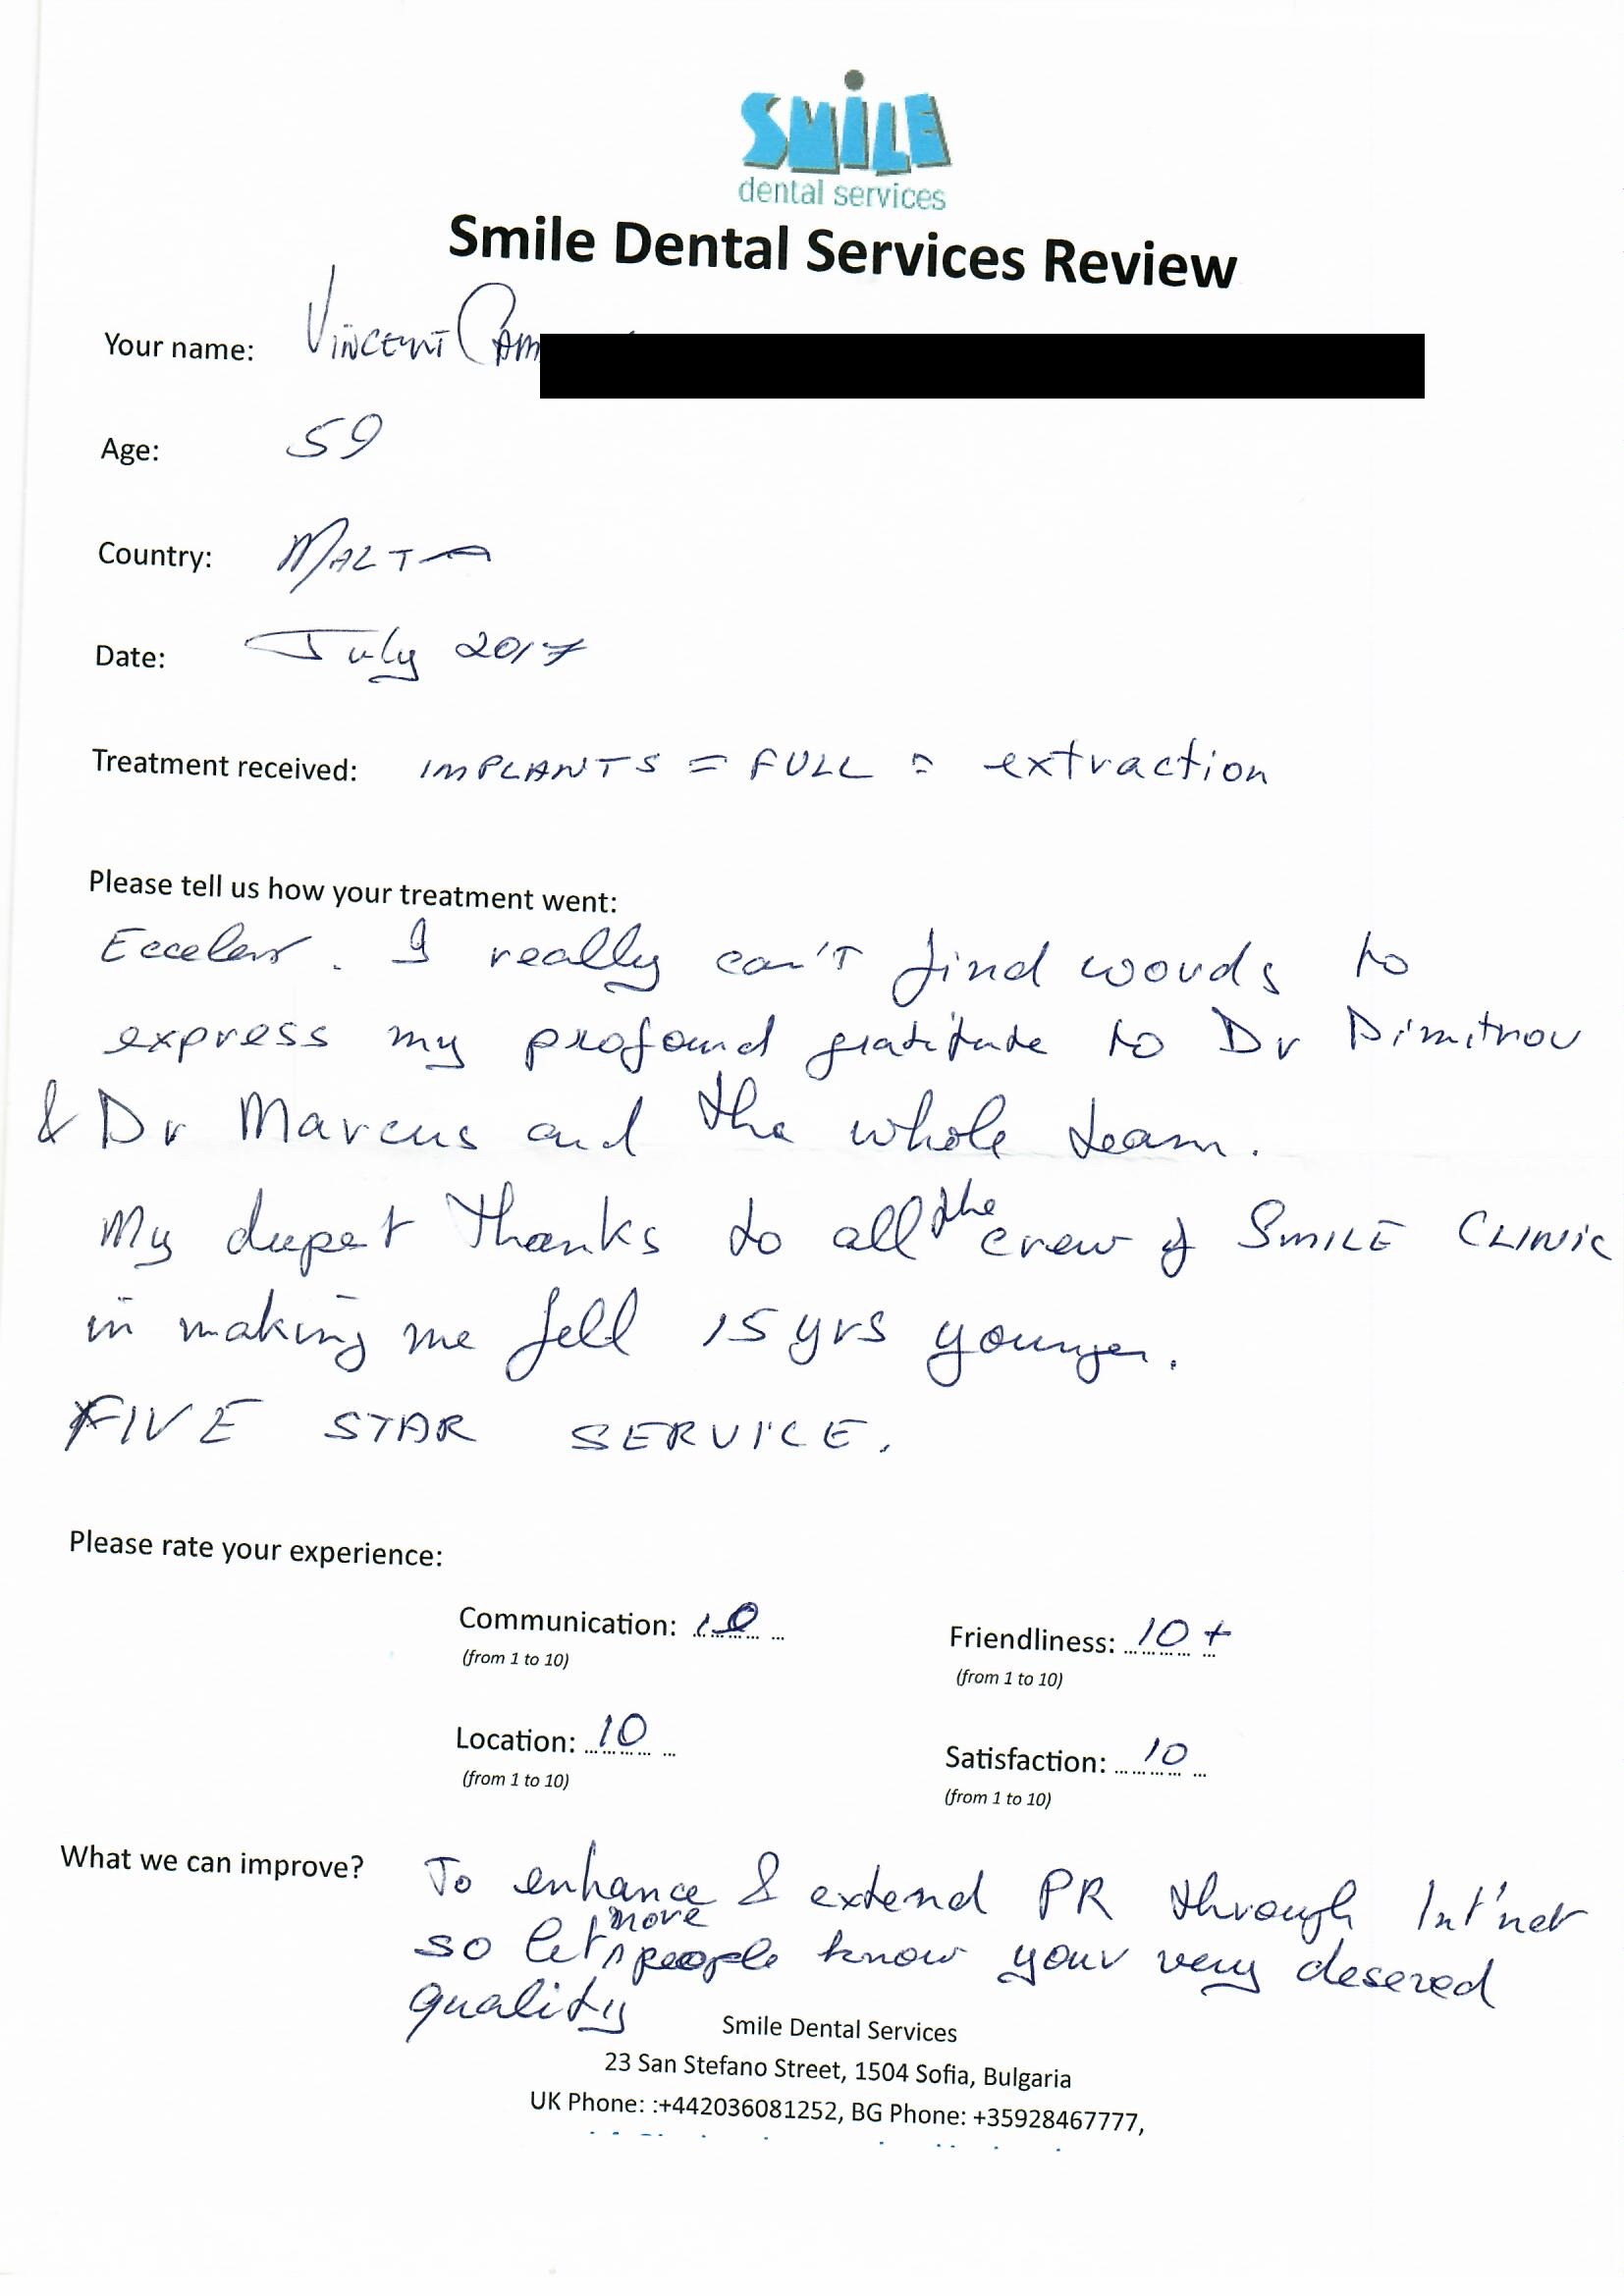 SMiLE
dental services
Smile Dental Services Review
Your name: Vincent Cam
Age: 59
Country: MALTA
Date: July 2017
Treatment received: IMPLANTS = FULL = extraction
Please tell us how your treatment went:
. I really can't find words to
express my profound gratitude to Dr Dimitrov
& Dr Marcus and the whole team.
My deepet thanks to all the crew of SMILE CLINIC
in making me fell 15 yrs younger.
FIVE STAR SERVICE.
Please rate your experience:
Communication: 10 Friendliness: 10 +
(from 1 to 10) (from 1 to 10)
Location: 10 Satisfaction: 10
(from 1 to 10) (from 1 to 10)
What we can improve? To enhance & extend PR through Int'net
so let more people know your very desered
quality
Smile Dental Services
23 San Stefano Street, 1504 Sofia, Bulgaria
UK Phone: :+442036081252, BG Phone: +35928467777,